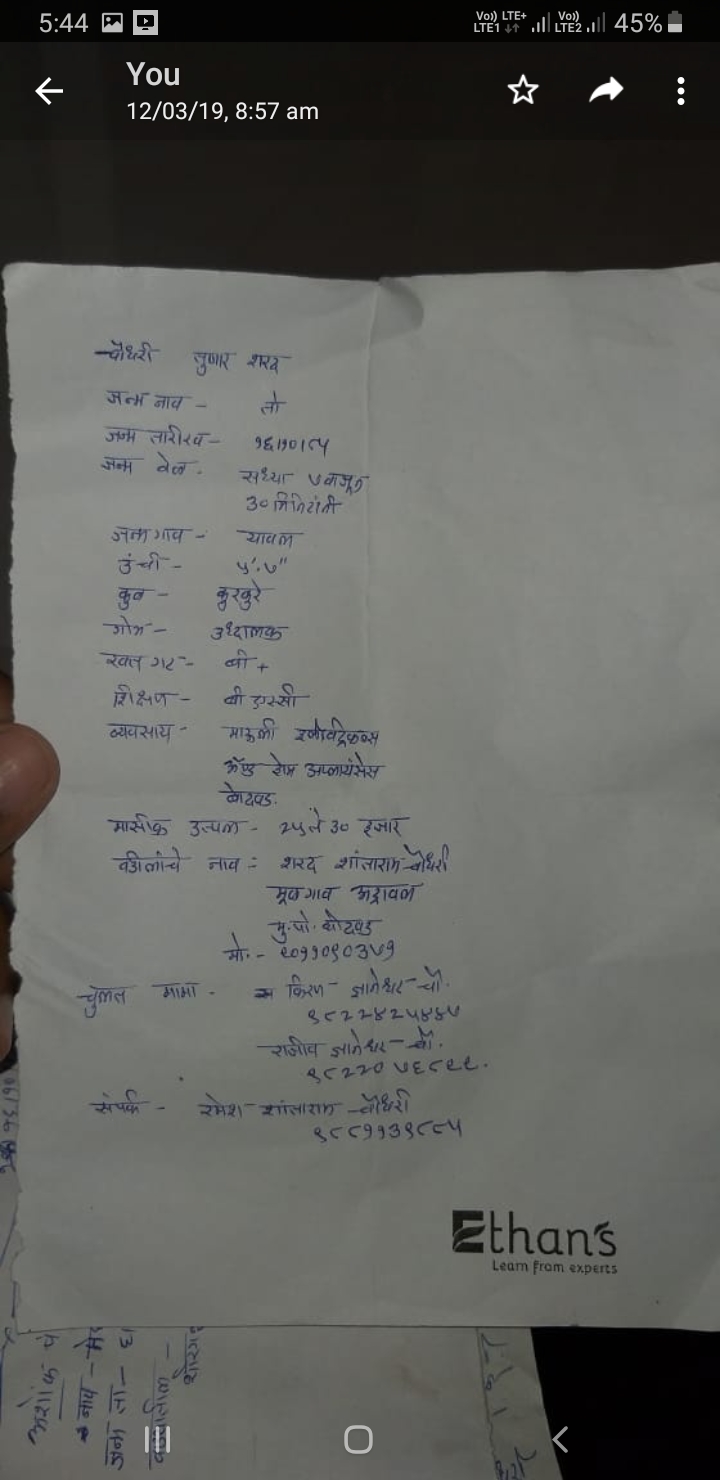 5:44 Vo) LTE+ LTE1 Vo) LTE2 45%
You
12/03/19, 8:57 am
चौधरी तुषार शरद
जन्म नाव - तो
जन्म तारीख - १६।१०।८५
जन्म वेळ. संध्या ७ वाजून
३० मिनिटांनी
जन्म गाव - यावल
उंची - ५'.७"
कुळ - कुरकुरे
गोत्र - उध्दालक
रक्त गट - बी +
शिक्षण - बी एस्सी
व्यवसाय - माऊली इलेक्ट्रिकल्स
अॅण्ड होम अप्लायंसेस
बोदवड.
मासीक उत्पन्न - २५ ते ३० हजार
वडीलांचे नाव : शरद शांताराम चौधरी
मूळगाव अट्रावल
मु.पो. बोदवड
मो. -
चुलत मामा - किरण ज्ञानेश्वर चौ.
९८२२४२५४४७
राजीव ज्ञानेश्वर चौ.
संपर्क - रमेश शांताराम चौधरी
९८८११३९८८५
Ethan's
Learn from experts